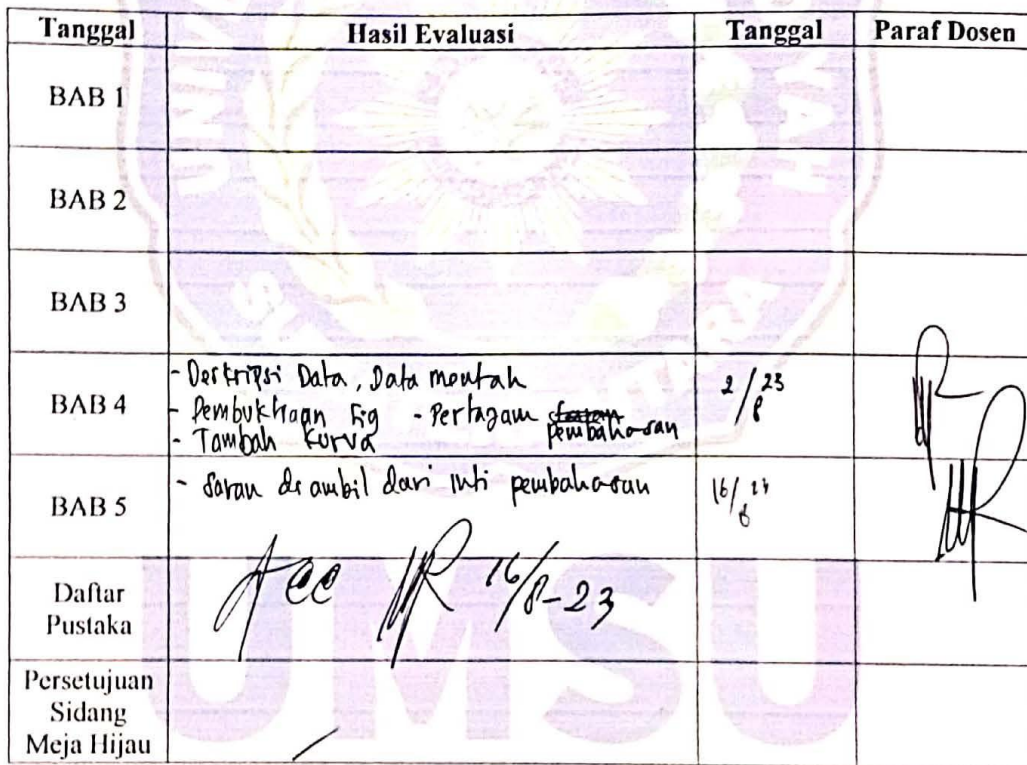 Tanggal Hasil Evaluasi Tanggal Paraf Dosen
BAB 1
BAB 2
BAB 3
BAB 4
- Deskripsi Data, Data mentah
- Pembuktiaan Fig - Pertajam pembahasan
- Tambah Kurva
2/8 23
BAB 5
- Saran di ambil dari inti pembahasan
16/8 23
Daftar
Pustaka
Acc 16/8-23
Persetujuan
Sidang
Meja Hijau
UMSU